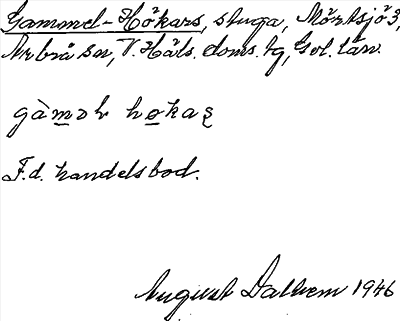 Gammel-Hökars, stuga, Mörtsjö 3,
Arbrå sn, V. Häls. doms. tg, Gvl. län.
gàməl hokaṣ
F.d. handelsbod.
August Dalhem 1946